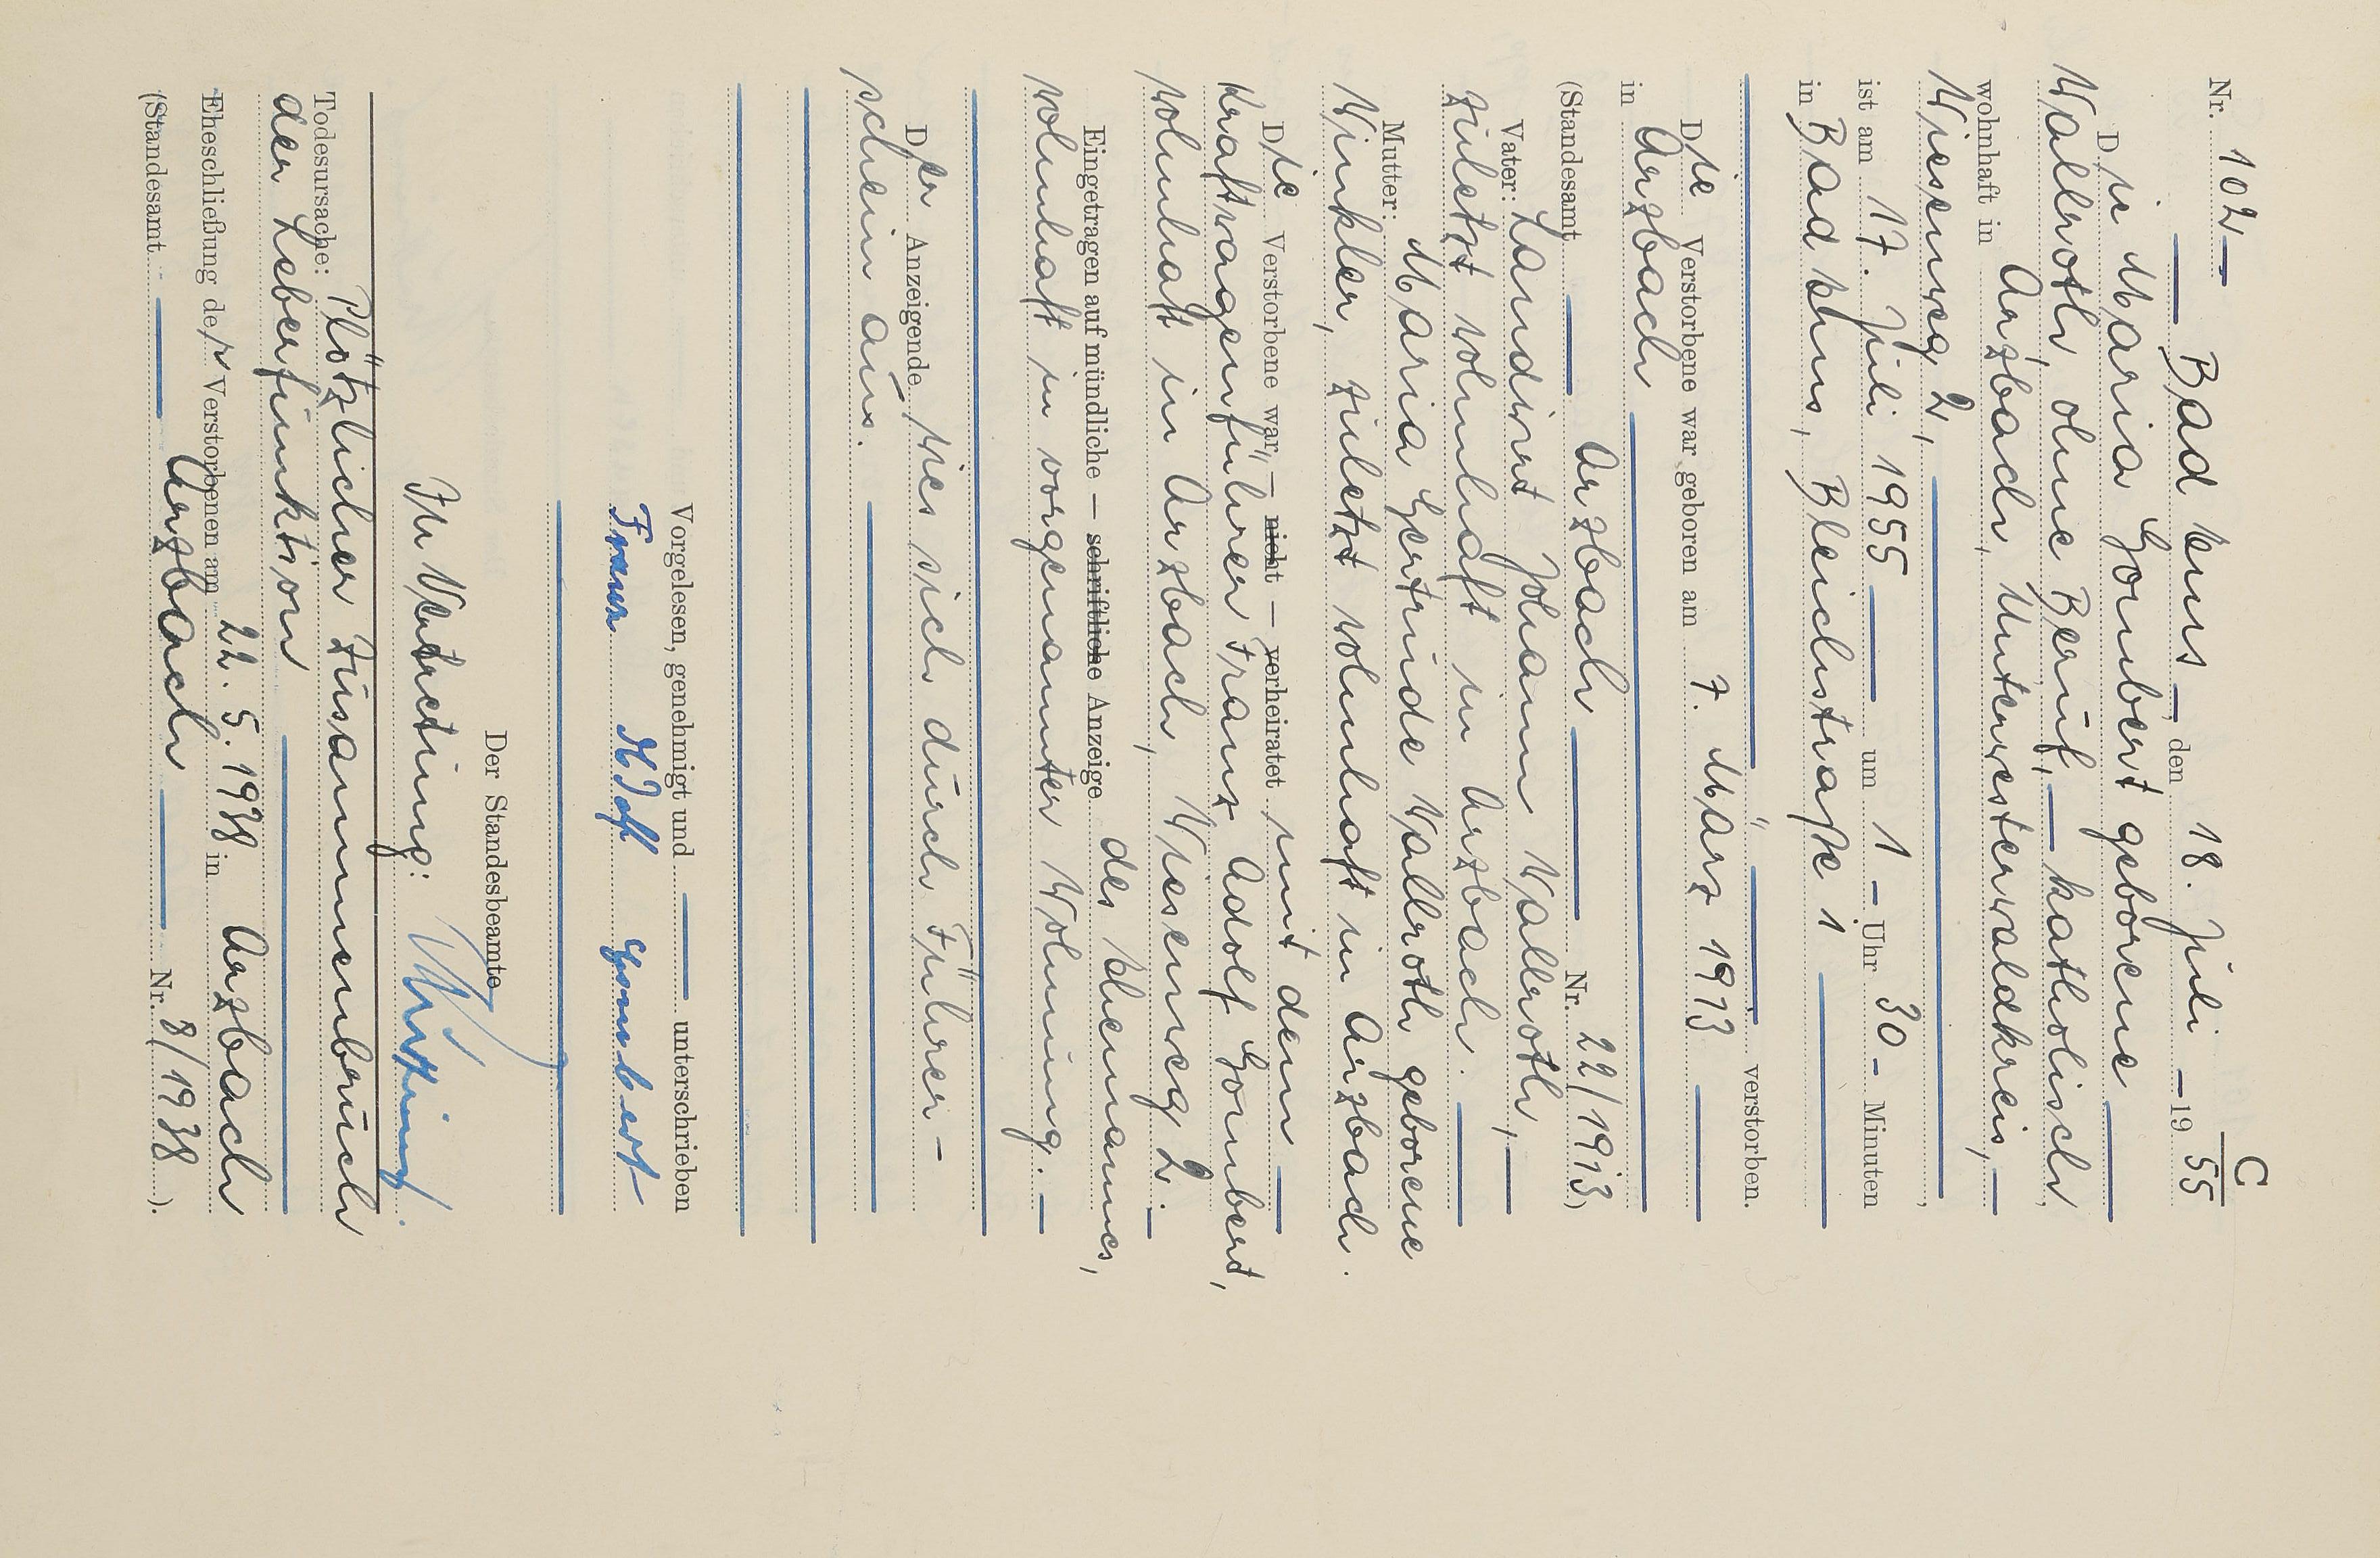 C
Nr. 102
Bad Ems, den 18. Juli 1955
Die Maria Gombert geborene
Wallroth, ohne Beruf, — katholisch,
wohnhaft in Arzbach, Unterwesterwaldkreis, —
Wiesenweg 2, ,
ist am 17. Juli 1955 um 1 - Uhr 30 - Minuten
in Bad Ems, Bleichstraße 1
verstorben.
Die Verstorbene war geboren am 7. März 1913
in Arzbach
(Standesamt Arzbach Nr. 22/1913)
Vater: Landwirt Johann Wallroth, —
zuletzt wohnhaft in Arzbach.
Mutter: Maria Gertrude Wallroth geborene
Winkler, zuletzt wohnhaft in Arzbach.
Die Verstorbene war — nicht — verheiratet mit dem
Kraftwagenführer Franz Adolf Gombert,
wohnhaft in Arzbach, Wiesenweg 2. —
Eingetragen auf mündliche — schriftliche Anzeige des Ehemannes,
wohnhaft in vorgenannter Wohnung. —
Der Anzeigende wies sich durch Führer-
schein aus.
Vorgelesen, genehmigt und unterschrieben
Franz Adolf Gombert
Der Standesbeamte
In Vertretung:
Todesursache: Plötzlicher Zusammenbruch
der Leberfunktion
Eheschließung der Verstorbenen am 22. 5. 1938 in Arzbach
(Standesamt Arzbach Nr. 8/1938).